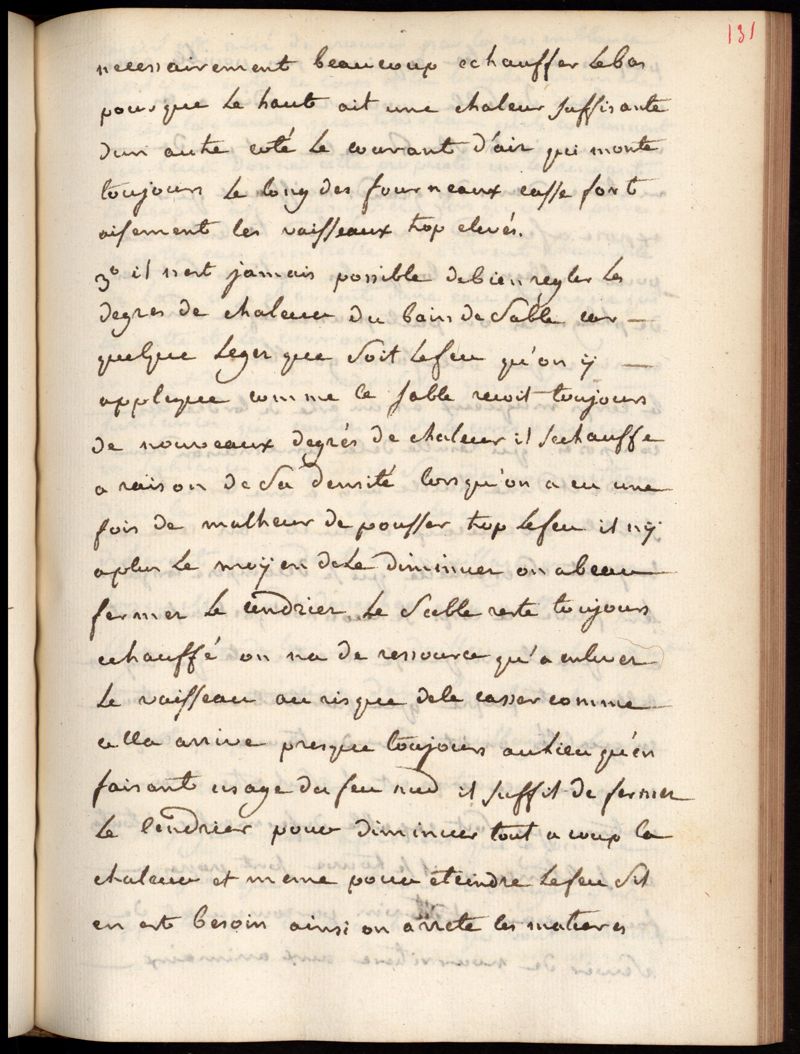 131
necessairement beaucoup echauffer le bas
pour que le haut ait une chaleur suffisante
dun autre coté le courant d'air qui monte
toujours le long des fourneaux casse fort
aisement les vaisseaux trop elevés.
3º il nest jamais possible de bien regler les
degres de chaleur du bain de sable car —
quelque leger que soit le feu qu'on ÿ —
applique comme le sable recoit toujours
de nouveaux degrés de chaleur il sechauffe
a raison de sa densité lorsqu'on a eu une
fois de malheur de pousser trop le feu il nÿ
a plus le moÿen de le diminuer on a beau
fermer le cendrier le sable reste toujours
echauffé on na de ressource qu'a enlever
le vaisseau au risque de le casser comme
cella arrive presque toujours au lieu qu'en
faisant usage du feu nud il suffit de fermer
le cendrier pour diminuer tout a coup la
chaleur et meme pour eteindre le feu sil
en est besoin ainsi on arrete les matieres